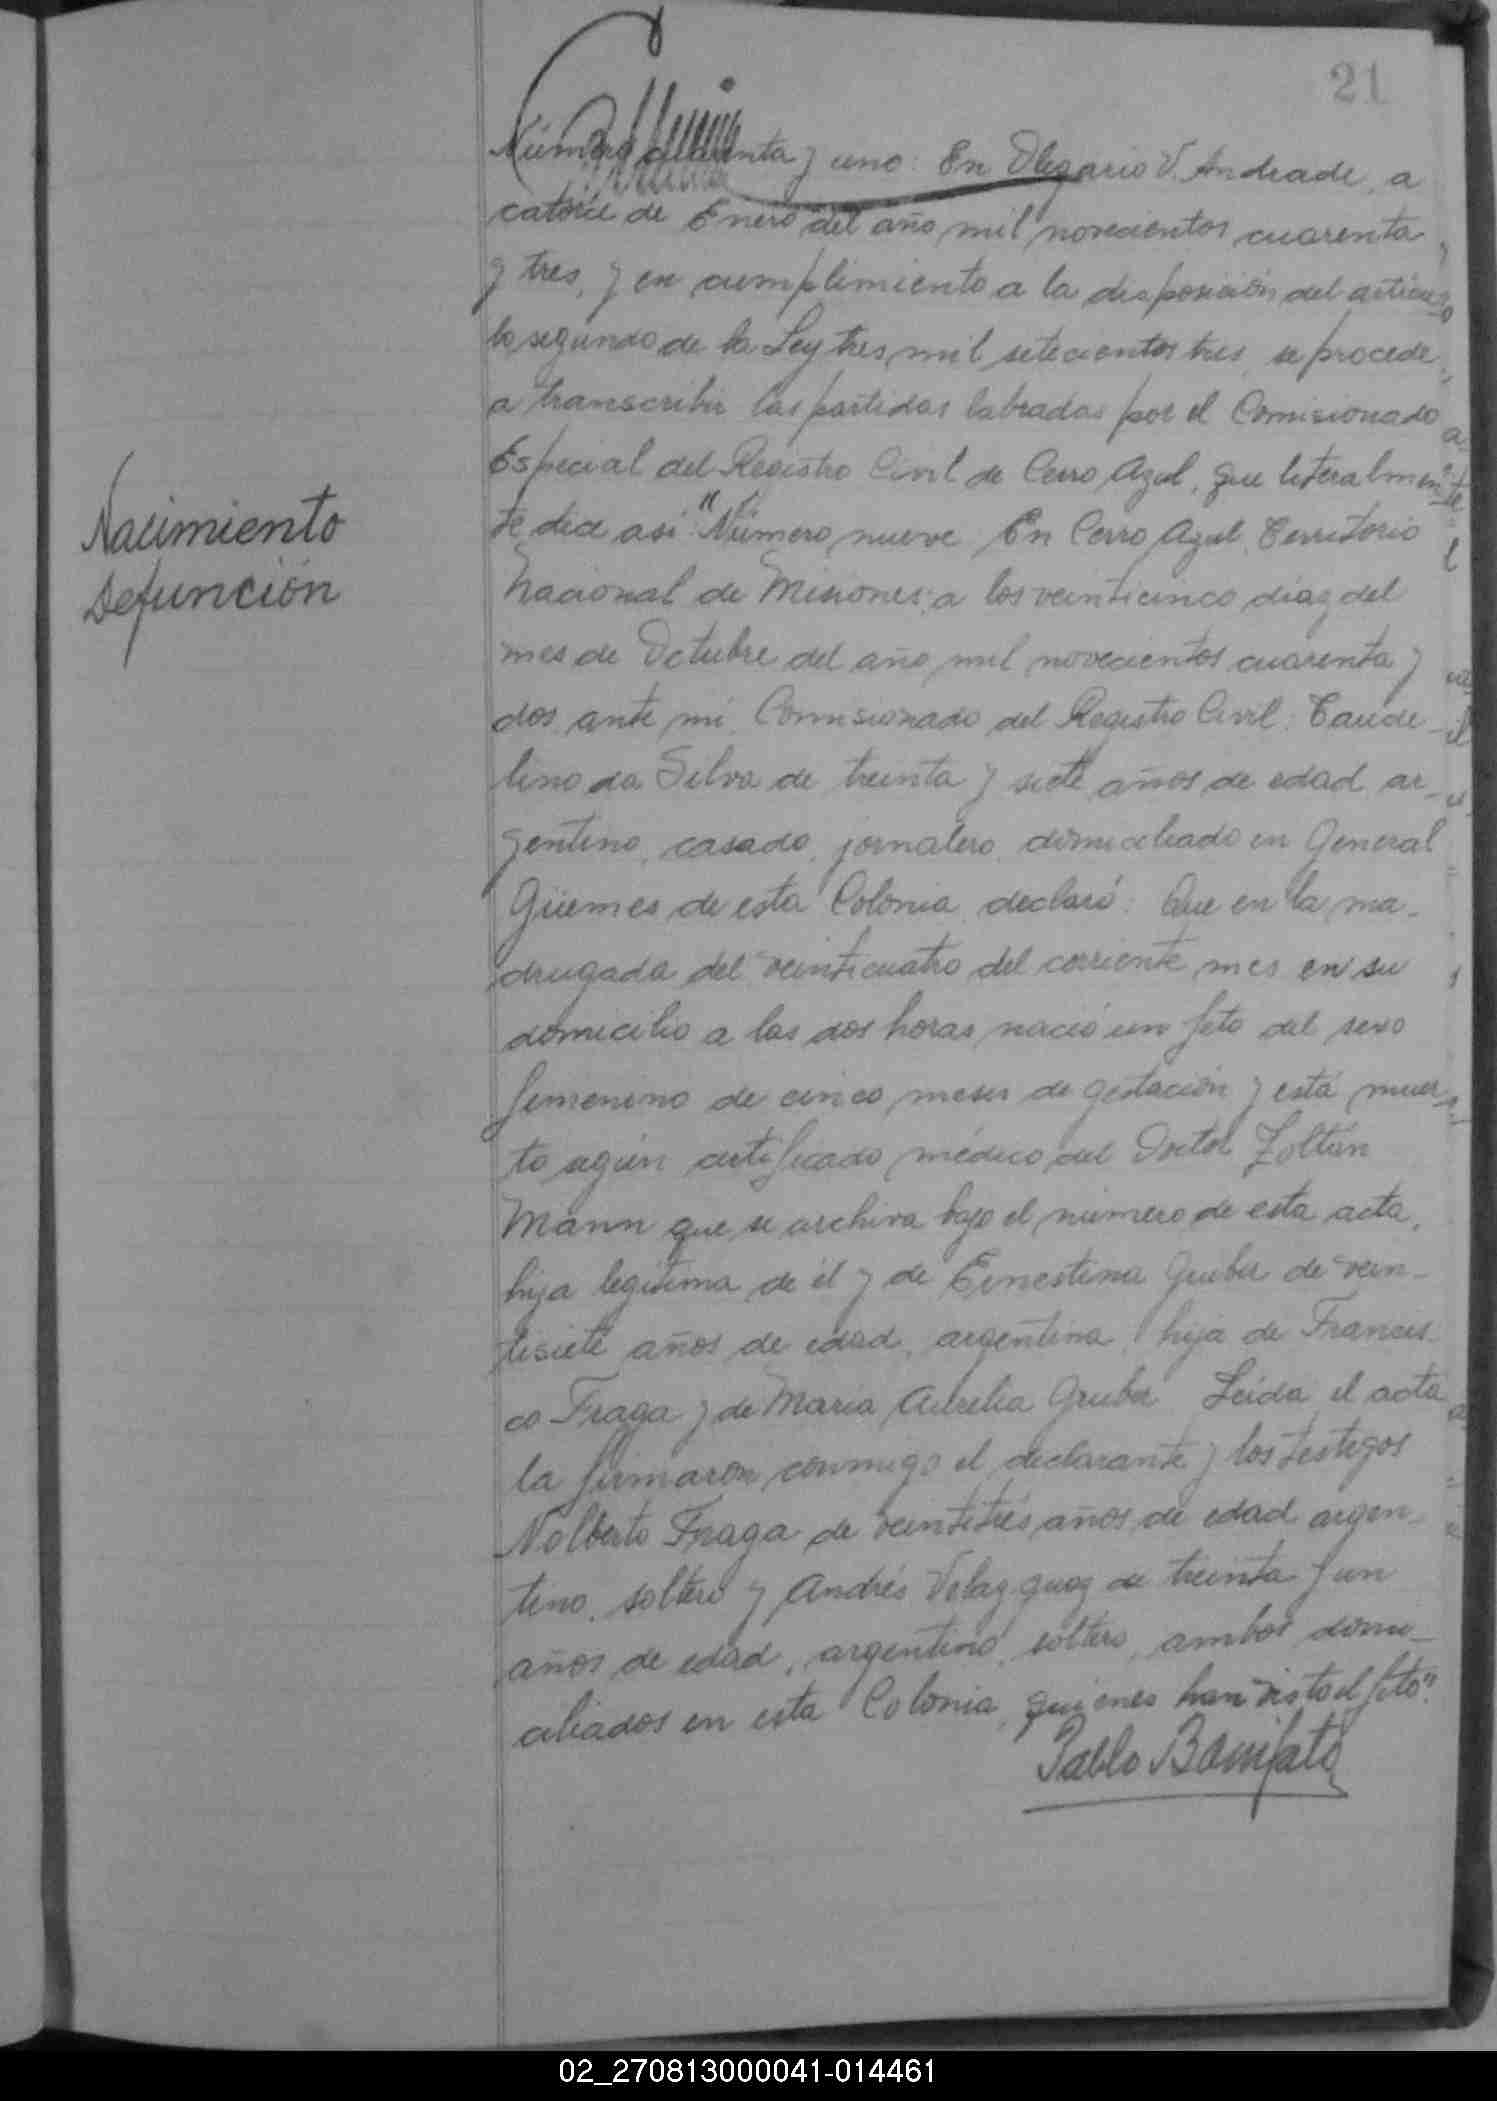 21
Número cuarenta y uno: En Olegario V. Andrade, a
catorce de Enero del año mil novecientos cuarenta
y tres, y en cumplimiento a la disposición del artícu-
lo segundo de la Ley tres mil setecientos tres, se procede
a transcribir las partidas labradas por el Comisionado
Especial del Registro Civil de Cerro Azul, que literalmen-
te dice así "Número nueve. En Cerro Azul, Territorio
Nacional de Misiones, a los veinticinco días del
mes de Octubre del año mil novecientos cuarenta y
dos, ante mí, Comisionado del Registro Civil: Taude-
lino da Silva de treinta y siete años de edad, ar-
gentino, casado, jornalero, domiciliado en General
Güemes de esta Colonia, declaró: Que en la ma-
drugada del veinticuatro del corriente mes en su
domicilio a las dos horas nació un feto del sexo
femenino de cinco meses de gestación y está muer-
to según certificado médico del Doctor Zoltán
Mann que se archiva bajo el número de esta acta,
hija legítima de él y de Ernestina Gruber de vein-
tisiete años de edad, argentina, hija de Francis-
co Fraga y de María Aurelia Gruber. Leída el acta
la firmaron conmigo el declarante y los testigos
Nolberto Fraga de veintitrés años de edad argen-
tino, soltero y Andrés Velazquez de treinta y un
años de edad, argentino, soltero, ambos domi-
ciliados en esta Colonia, quienes han visto el feto".
Pablo Bonifato
Nacimiento
Defunción
02_270813000041-014461